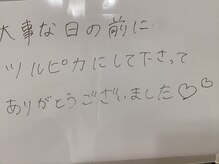 大事な日の前に
ツルピカにして下さって
ありがとうございました♡♡